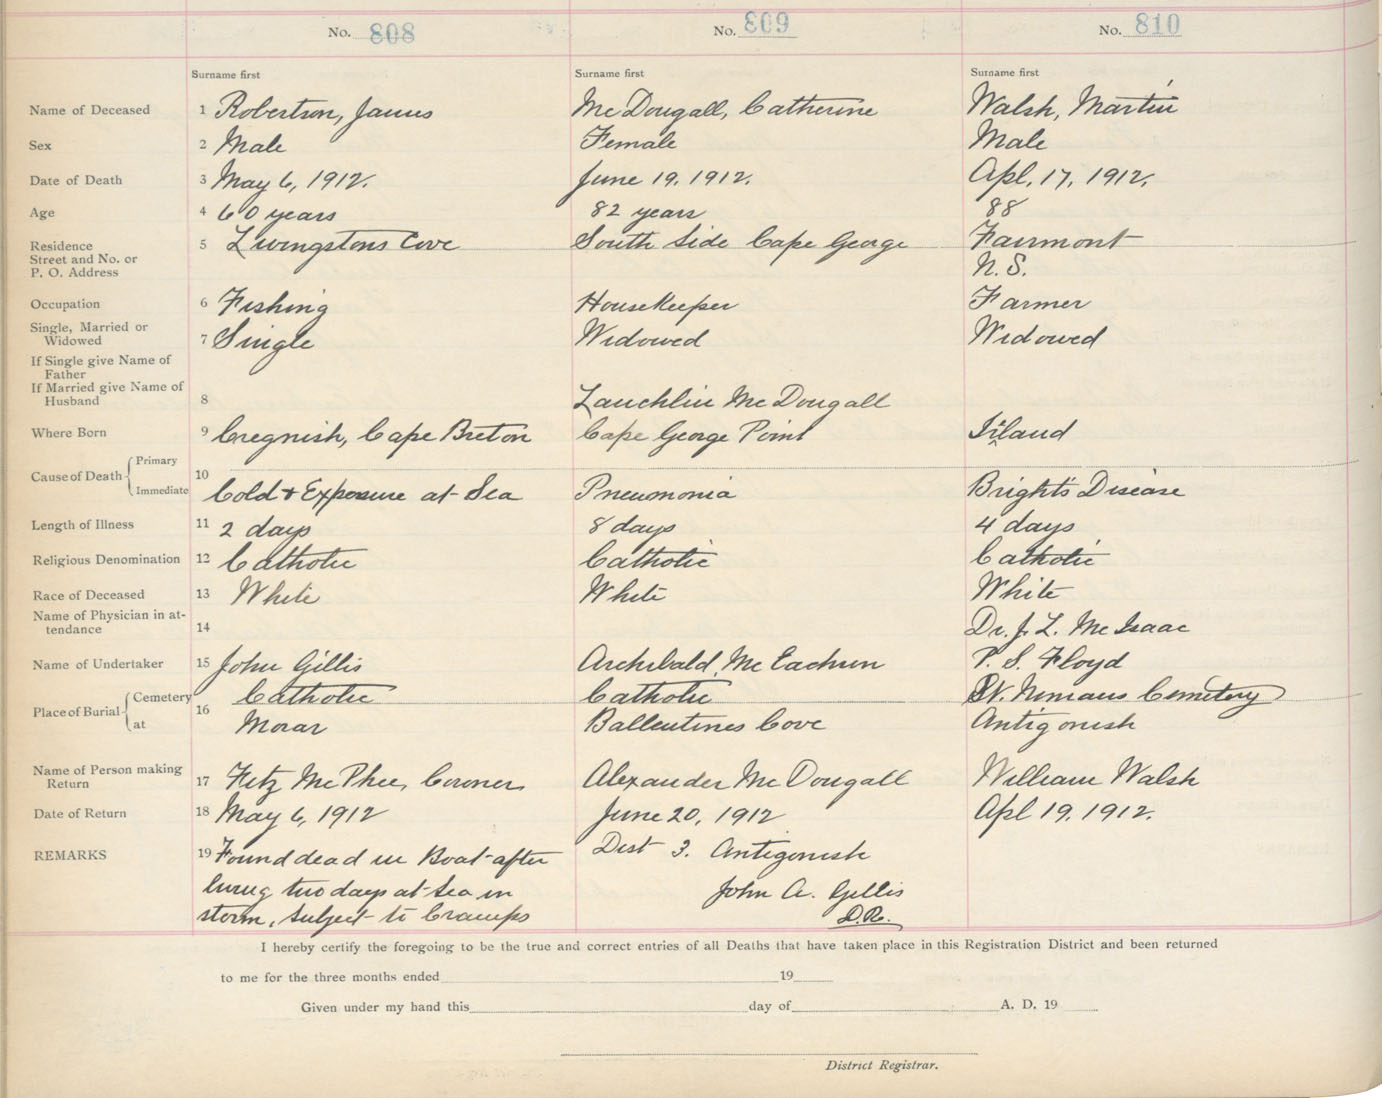 No. 808 No. 809 No. 810
Surname first Surname first Surname first
Name of Deceased 1 Robertson, James McDougall, Catherine Walsh, Martin
Sex 2 Male Female Male
Date of Death 3 May 6, 1912. June 19. 1912. Apl. 17, 1912.
Age 4 60 years 82 years 88
Residence Street and No. or P. O. Address 5 Livingstons Cove South Side Cape George Fairmont
N.S.
Occupation 6 Fishing Housekeeper Farmer
Single, Married or Widowed 7 Single Widowed Widowed
If Single give Name of Father
If Married give Name of Husband 8 Lauchlin McDougall
Where Born 9 Cregnish, Cape Breton Cape George Point Iland
Cause of Death Primary
Immediate 10 Cold & Exposure at Sea Pneumonia Bright's Disease
Length of Illness 11 2 days 8 days 4 days
Religious Denomination 12 Catholic Catholic Catholic
Race of Deceased 13 White White White
Name of Physician in attendance 14 Dr. J. L. McIsaac
Name of Undertaker 15 John Gillis Archibald McEachern P. S. Floyd
Place of Burial Cemetery 16 Catholic Catholic St. Ninians Cemetery
at Morar Ballentines Cove Antigonish
Name of Person making Return 17 Fitz McPhee, Coroner Alexander McDougall William Walsh
Date of Return 18 May 6, 1912 June 20, 1912 Apl 19. 1912.
REMARKS 19 Found dead in Boat after Dist 3. Antigonish
being two days at Sea in John A. Gillis
storm, subject to Cramps D.R.
I hereby certify the foregoing to be the true and correct entries of all Deaths that have taken place in this Registration District and been returned
to me for the three months ended 19
Given under my hand this day of A. D. 19
District Registrar.